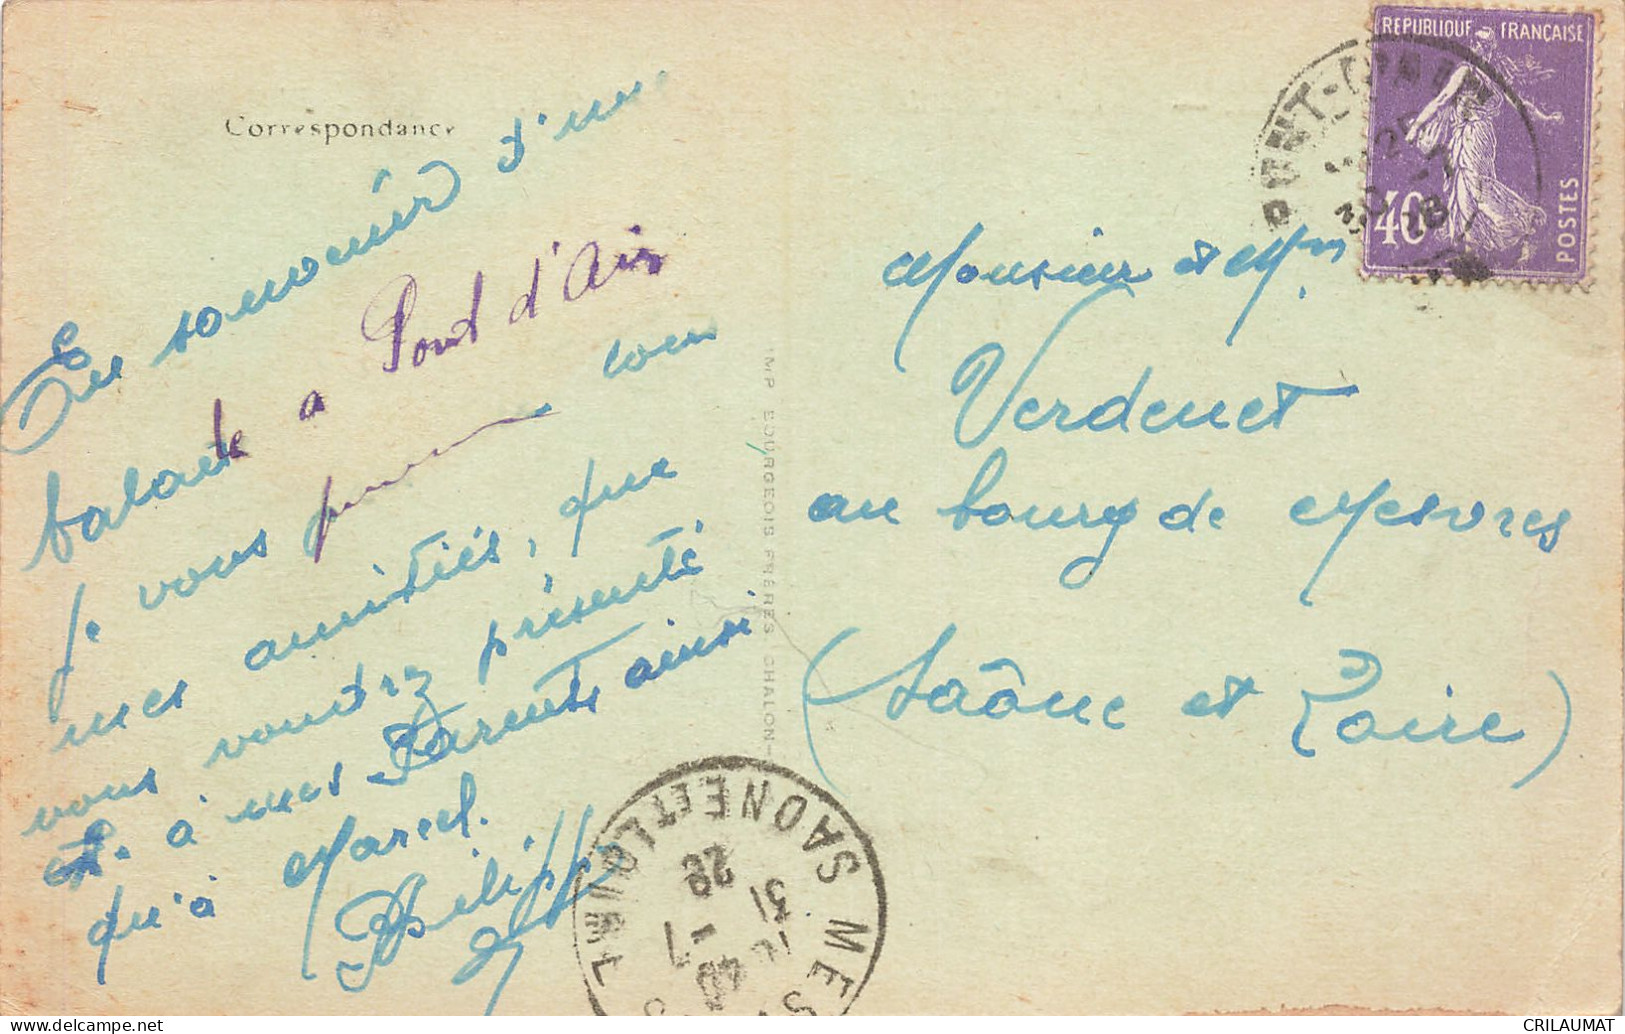 Correspondance
En souvenir d'une
balade a Pont d'Ain
je vous prie
mes amitiés, que
vous voudrez présenté
et à mes Parents ainsi
qu'à Marcel.
Philippe
IMP. BOURGEOIS FRÈRES CHALON-
REPUBLIQUE FRANÇAISE
40
POSTES
PONT-D'AIN
Monsieur et Mm
Verdenet
au bourg de Mesvres
(Saône et Loire)
MESVRES SAONE ET LOIRE
31
7
28
CRILAUMAT